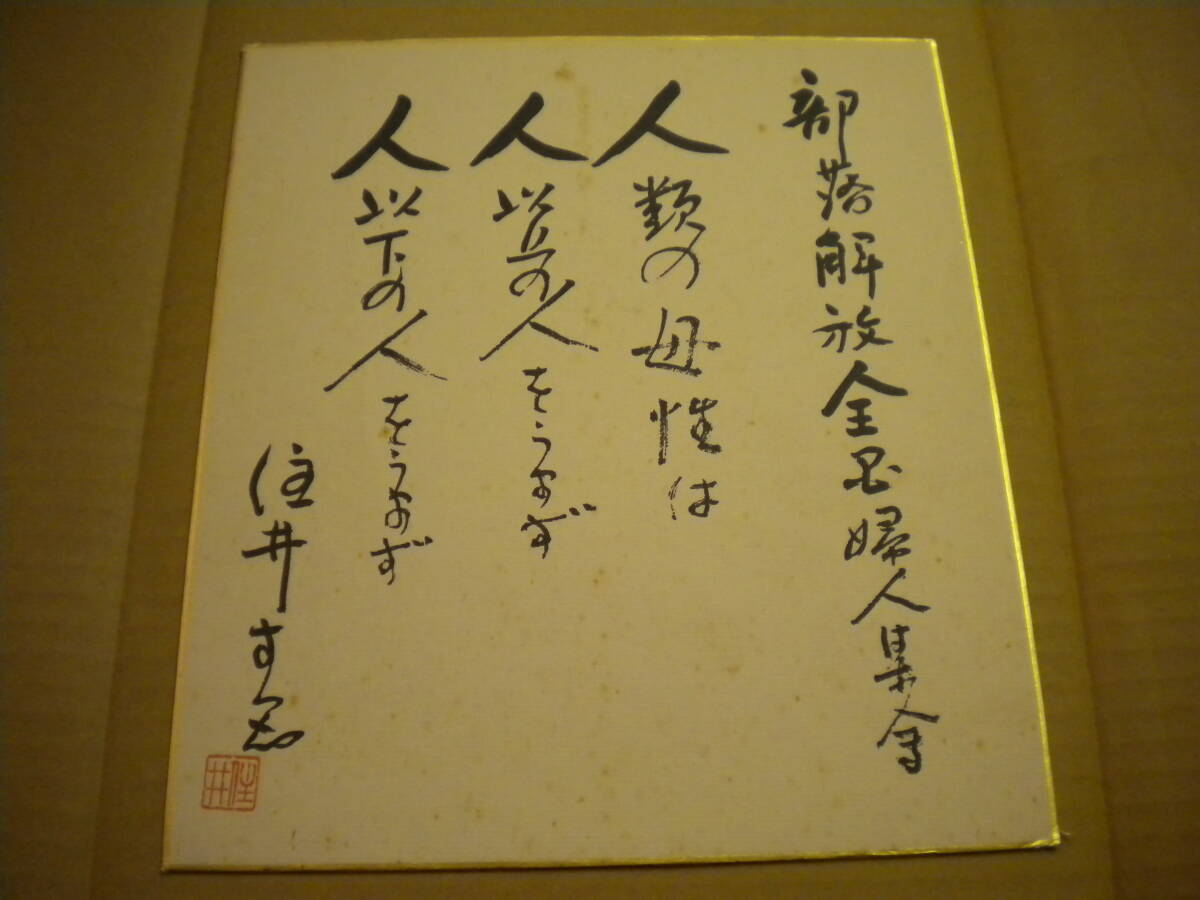 部落解放全国婦人集会
人類の母性は
人以上の人をうまず
人以下の人をうまず
住井すゑ
住井